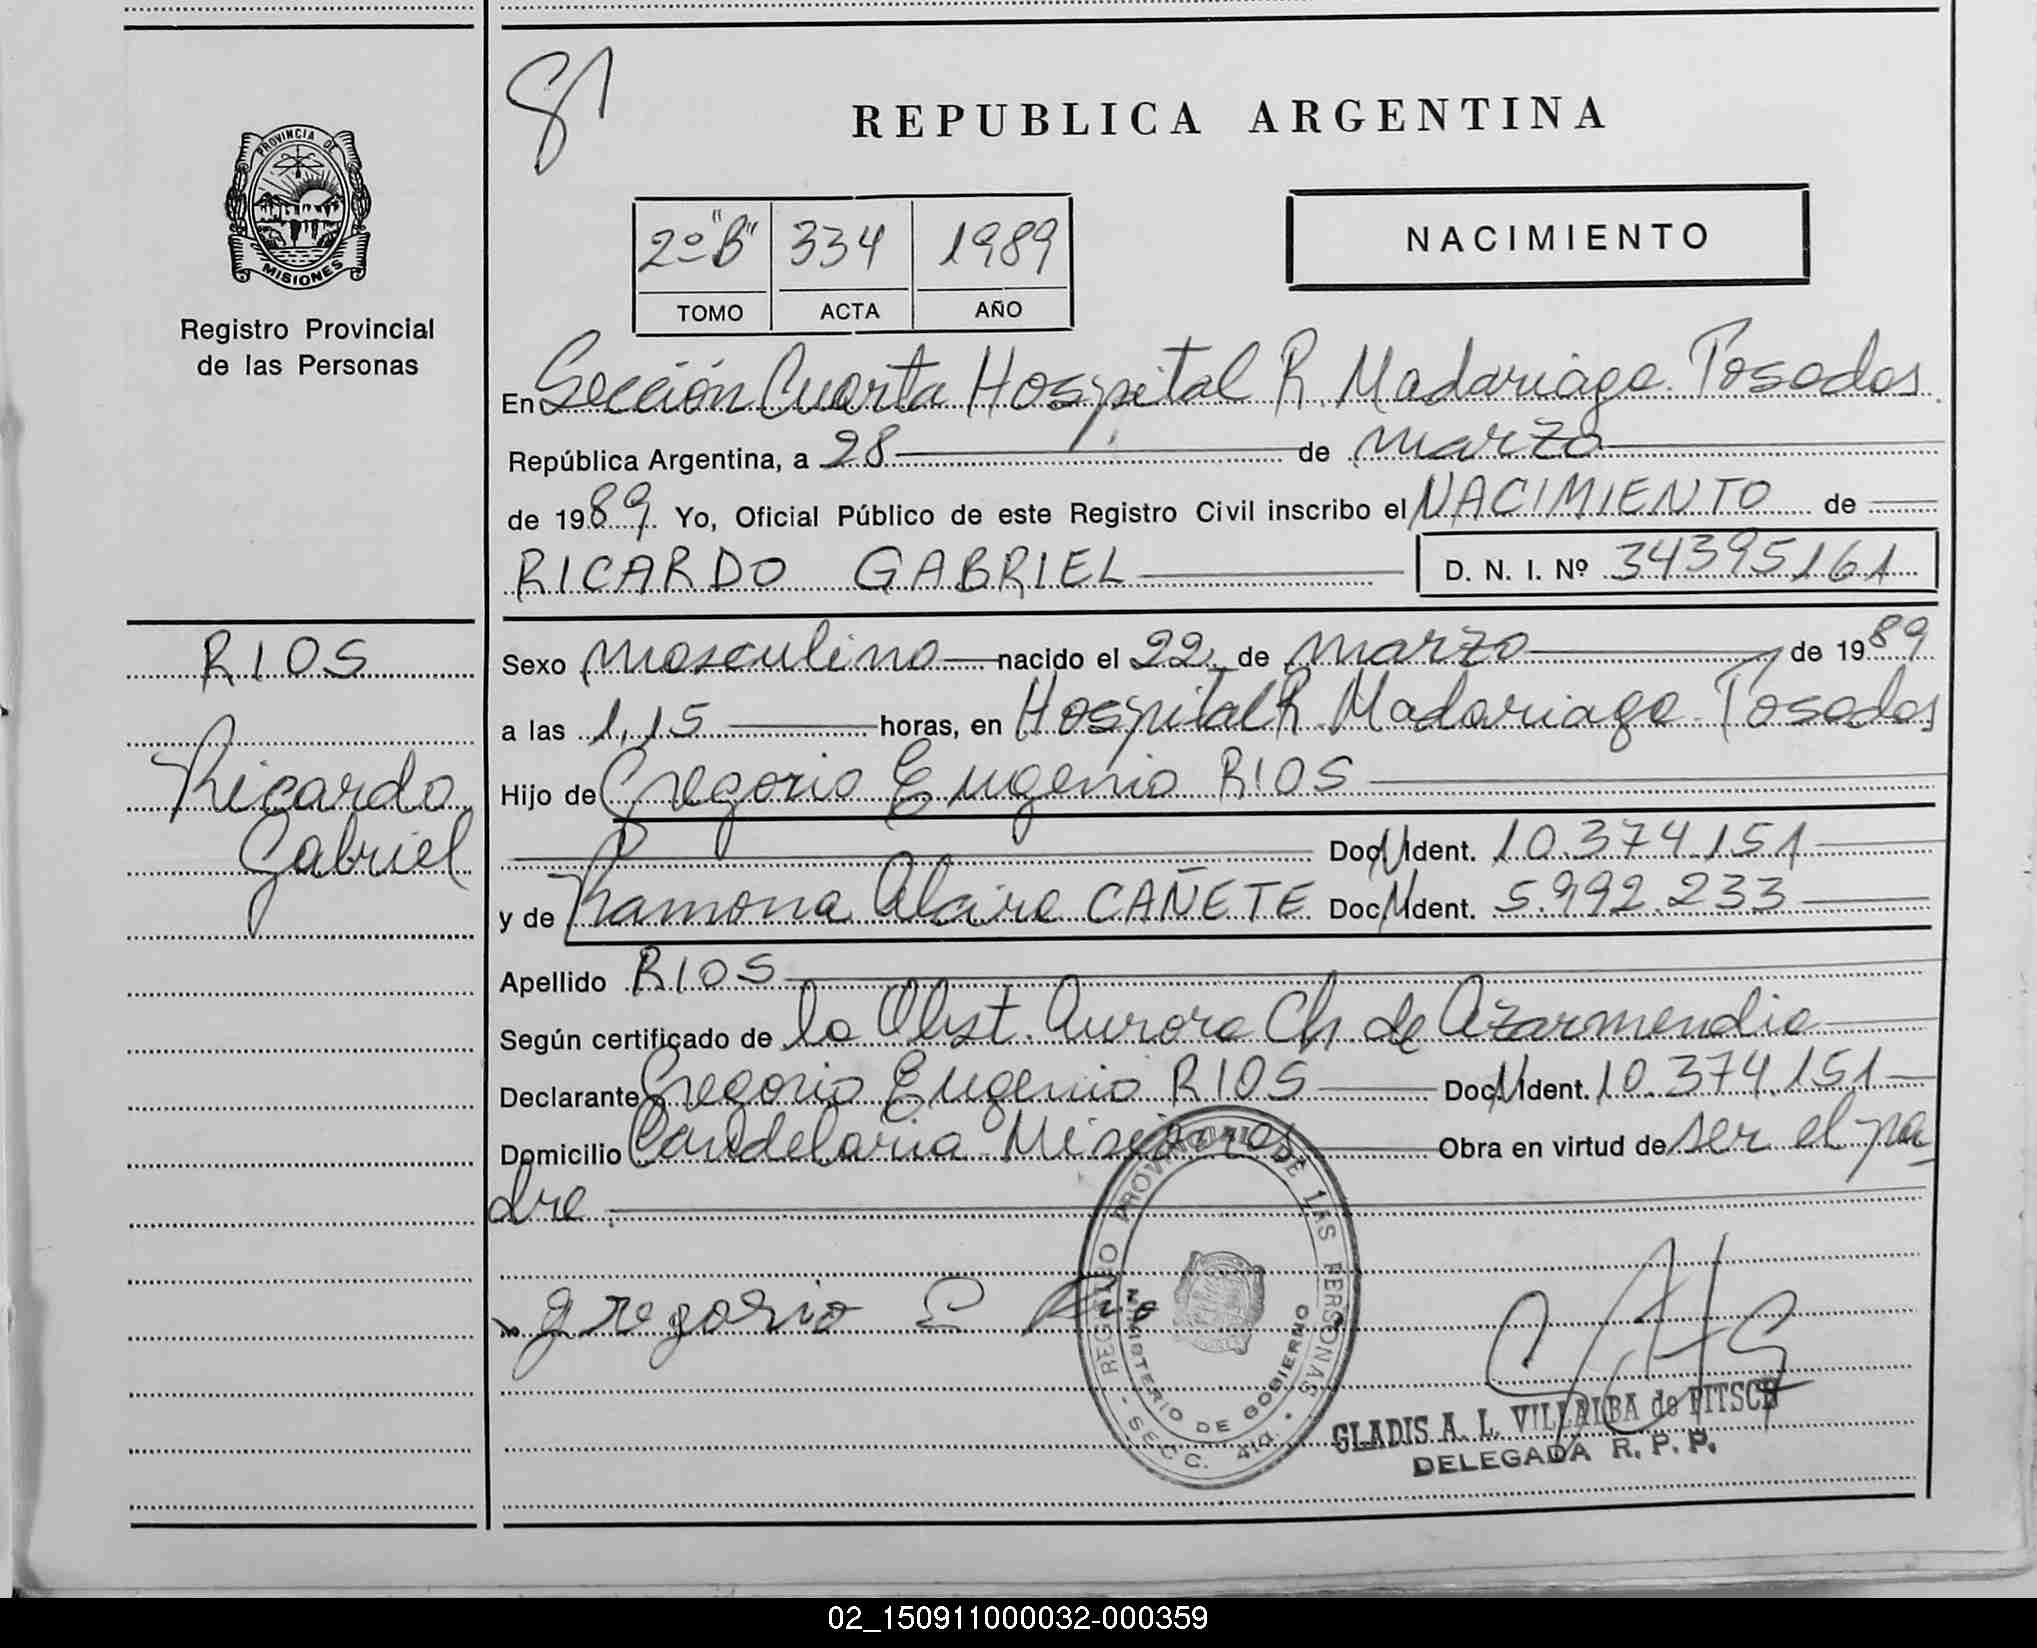 81
REPUBLICA ARGENTINA
PROVINCIA DE
MISIONES
Registro Provincial
de las Personas
2º "B" 334 1989
TOMO ACTA AÑO
NACIMIENTO
En Sección Cuarta Hospital R. Madariaga. Posadas
República Argentina, a 28 de marzo
de 1989. Yo, Oficial Público de este Registro Civil inscribo el NACIMIENTO de
RICARDO GABRIEL D. N. I. Nº 34395161
RIOS
Ricardo
Gabriel
Sexo masculino nacido el 22 de marzo de 1989
a las 1,15 horas, en Hospital R. Madariaga. Posadas
Hijo de Gregorio Eugenio RIOS
Doc. Ident. 10.374.151
y de Ramona Alcira CAÑETE Doc. Ident. 5.992.233
Apellido RIOS
Según certificado de la Obst. Aurora Ch. de Azarmendia
Declarante Gregorio Eugenio RIOS Doc. Ident. 10.374.151
Domicilio Candelaria Misiones Obra en virtud de ser el pa
dre.
gregorio E Rio
REGISTRO PROVINCIAL DE LAS PERSONAS
MINISTERIO DE GOBIERNO
- SECC. 4ta. -
GLADIS A. L. VILLALBA de FITSCH
DELEGADA R. P. P.
02_150911000032-000359